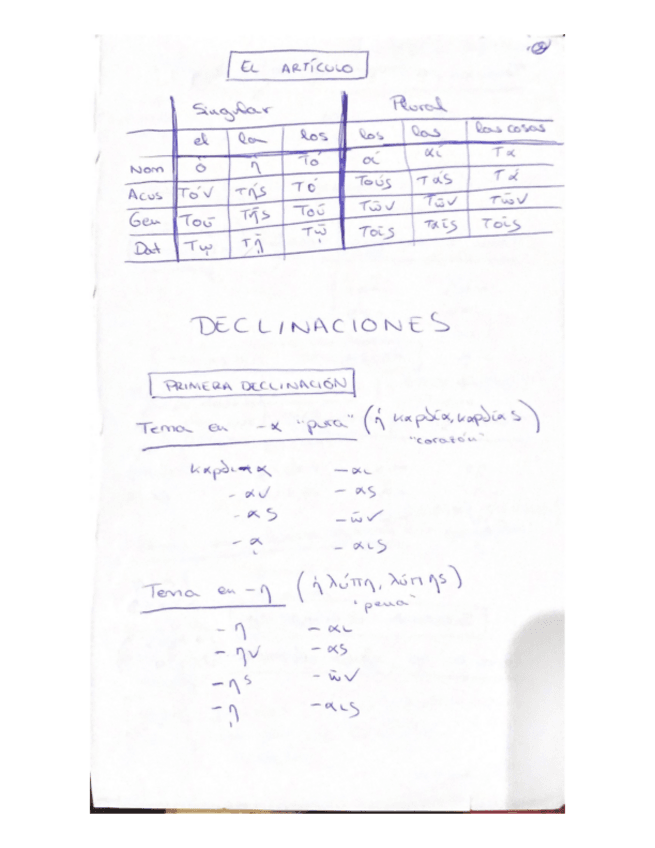 EL ARTÍCULO
Singular Plural
el la los los las las cosas
Nom ὁ ἡ τό οἱ αἱ τά
Acus τόν τής τό τούς τάς τά
Gen τοῦ τῆς τοῦ τῶν τῶν τῶν
Dat τῳ τῇ τῷ τοῖς ταῖς τοῖς
DECLINACIONES
PRIMERA DECLINACIÓN
Tema en -α "pura" (ἡ καρδία, καρδίας)
"corazón"
καρδι-α -αι
-αν -ας
-ας -ῶν
-ᾳ -αις
Tema en -η (ἡ λύπη, λύπης)
"pena"
-η -αι
-ην -ας
-ης -ῶν
-ῃ -αις